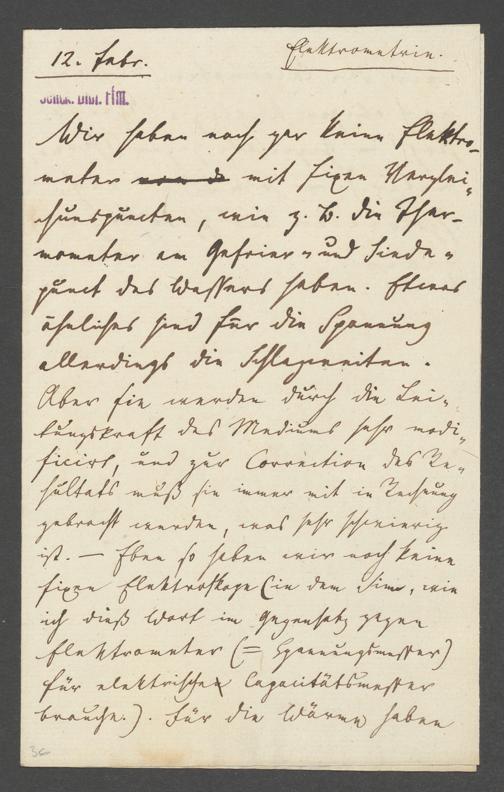 12. Febr.
Elektrometrie.
Senck. Bibl. Ffm.
Wir haben noch gar keine Elektro-
meter mit fixen Verglei-
chungspuncten, wie z. B. die Ther-
mometer am Gefrier- und Siede-
punct des Wassers haben. Etwas
ähnliches sind für die Spannung
allerdings die Schlagweiten.
Aber sie werden durch die Lei-
tungskraft des Mediums sehr modi-
ficirt, und zur Correction des Re-
sultats muß sie immer mit in Rechnung
gebracht werden, was sehr schwierig
ist. — Eben so haben wir noch keine
fixen Elektroskope (in dem Sinn, wie
ich dieß Wort im Gegensatz gegen
Elektrometer (= Spannungsmesser)
für elektrische Capacitätsmesser
brauche.). Für die Wärme haben
36